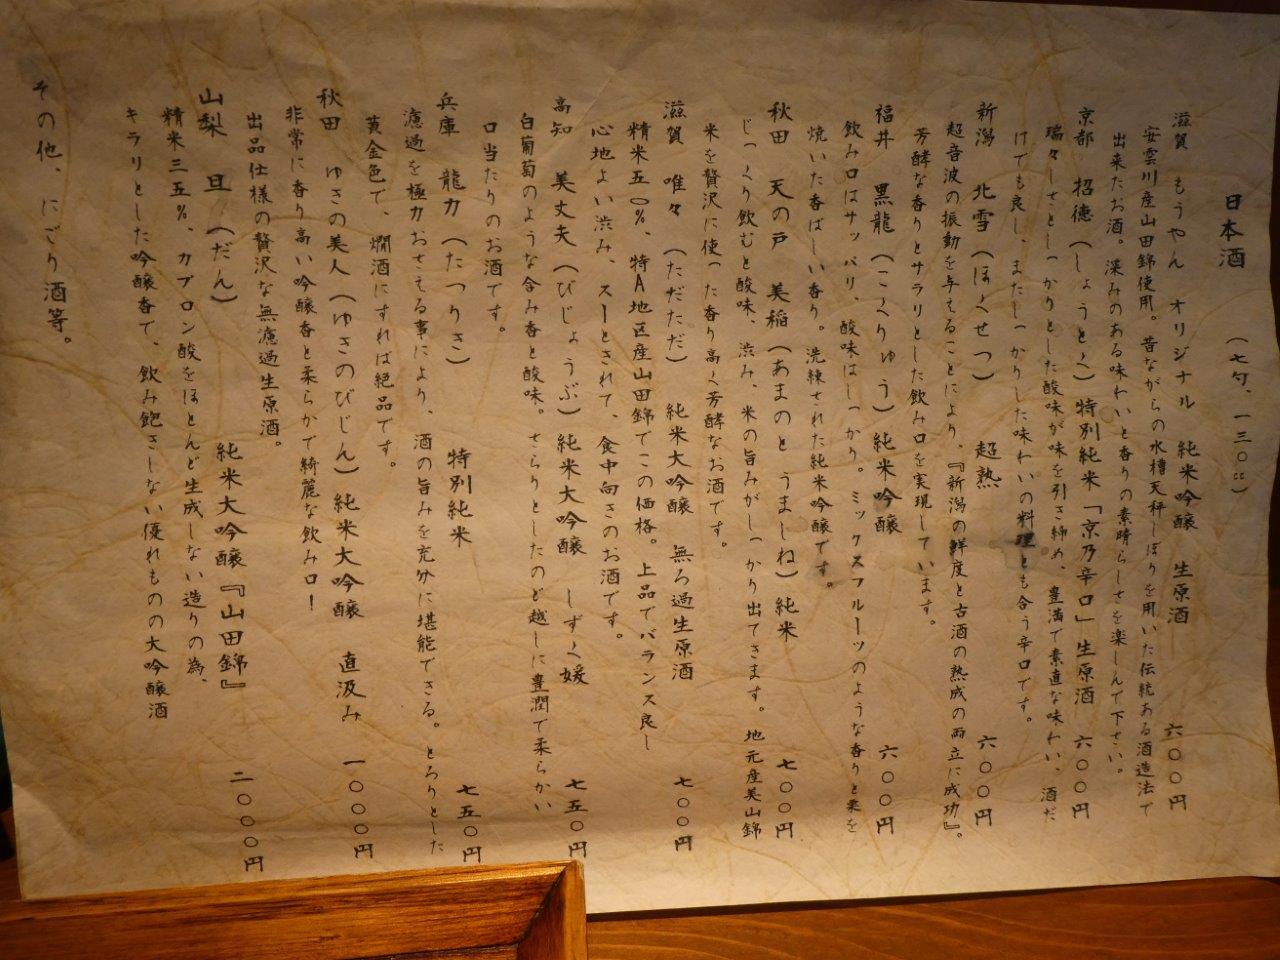 日本酒 (七勺、一三〇cc)
滋賀 もうやん オリジナル 純米吟醸 生原酒 六〇〇円
安雲川産山田錦使用。昔ながらの水槽天秤しぼりを用いた伝統ある酒造法で
出来たお酒。深みのある味わいと香りの素晴らしさを楽しんで下さい。
京都 招徳(しょうとく)特別純米「京乃辛口」生原酒 六〇〇円
瑞々しさとしっかりとした酸味が味を引き締め、豊満で素直な味わい、酒だ
けでも良し、またしっかりした味わいの料理とも合う辛口です。
新潟 北雪(ほくせつ) 超熟 六〇〇円
超音波の振動を与えることにより、『新潟の鮮度と古酒の熟成の両立に成功』。
芳酵な香りとサラリとした飲み口を実現しています。
福井 黒龍(こくりゅう)純米吟醸 六〇〇円
飲み口はサッパリ、酸味はしっかり。ミックスフルーツのような香りと栗を
焼いた香ばしい香り。洗練された純米吟醸です。
秋田 天の戸 美稲(あまのと うましね)純米 七〇〇円
じっくり飲むと酸味、渋み、米の旨みがしっかり出てきます。地元産美山錦
米を贅沢に使った香り高く芳酵なお酒です。
滋賀 唯々(ただただ) 純米大吟醸 無ろ過生原酒 七〇〇円
精米五〇％、特A地区産山田錦でこの価格。上品でバランス良し
心地よい渋み、スーときれて、食中向きのお酒です。
高知 美丈夫(びじょうぶ)純米大吟醸 しずく媛 七五〇円
白葡萄のような含み香と酸味。さらりとしたのど越しに豊潤で柔らかい
口当たりのお酒です。
兵庫 龍力(たつりき) 特別純米 七五〇円
濾過を極力おさえる事により、酒の旨みを充分に堪能できる。とろりとした
黄金色で、燗酒にすれば絶品です。
秋田 ゆきの美人(ゆきのびじん)純米大吟醸 直汲み 一〇〇〇円
非常に香り高い吟醸香と柔らかで綺麗な飲み口！
出品仕様の贅沢な無濾過生原酒。
山梨 旦(だん) 純米大吟醸『山田錦』 二〇〇〇円
精米三五％、カプロン酸をほとんど生成しない造りの為、
キラリとした吟醸香で、飲み飽きしない優れものの大吟醸酒
その他、にごり酒等。